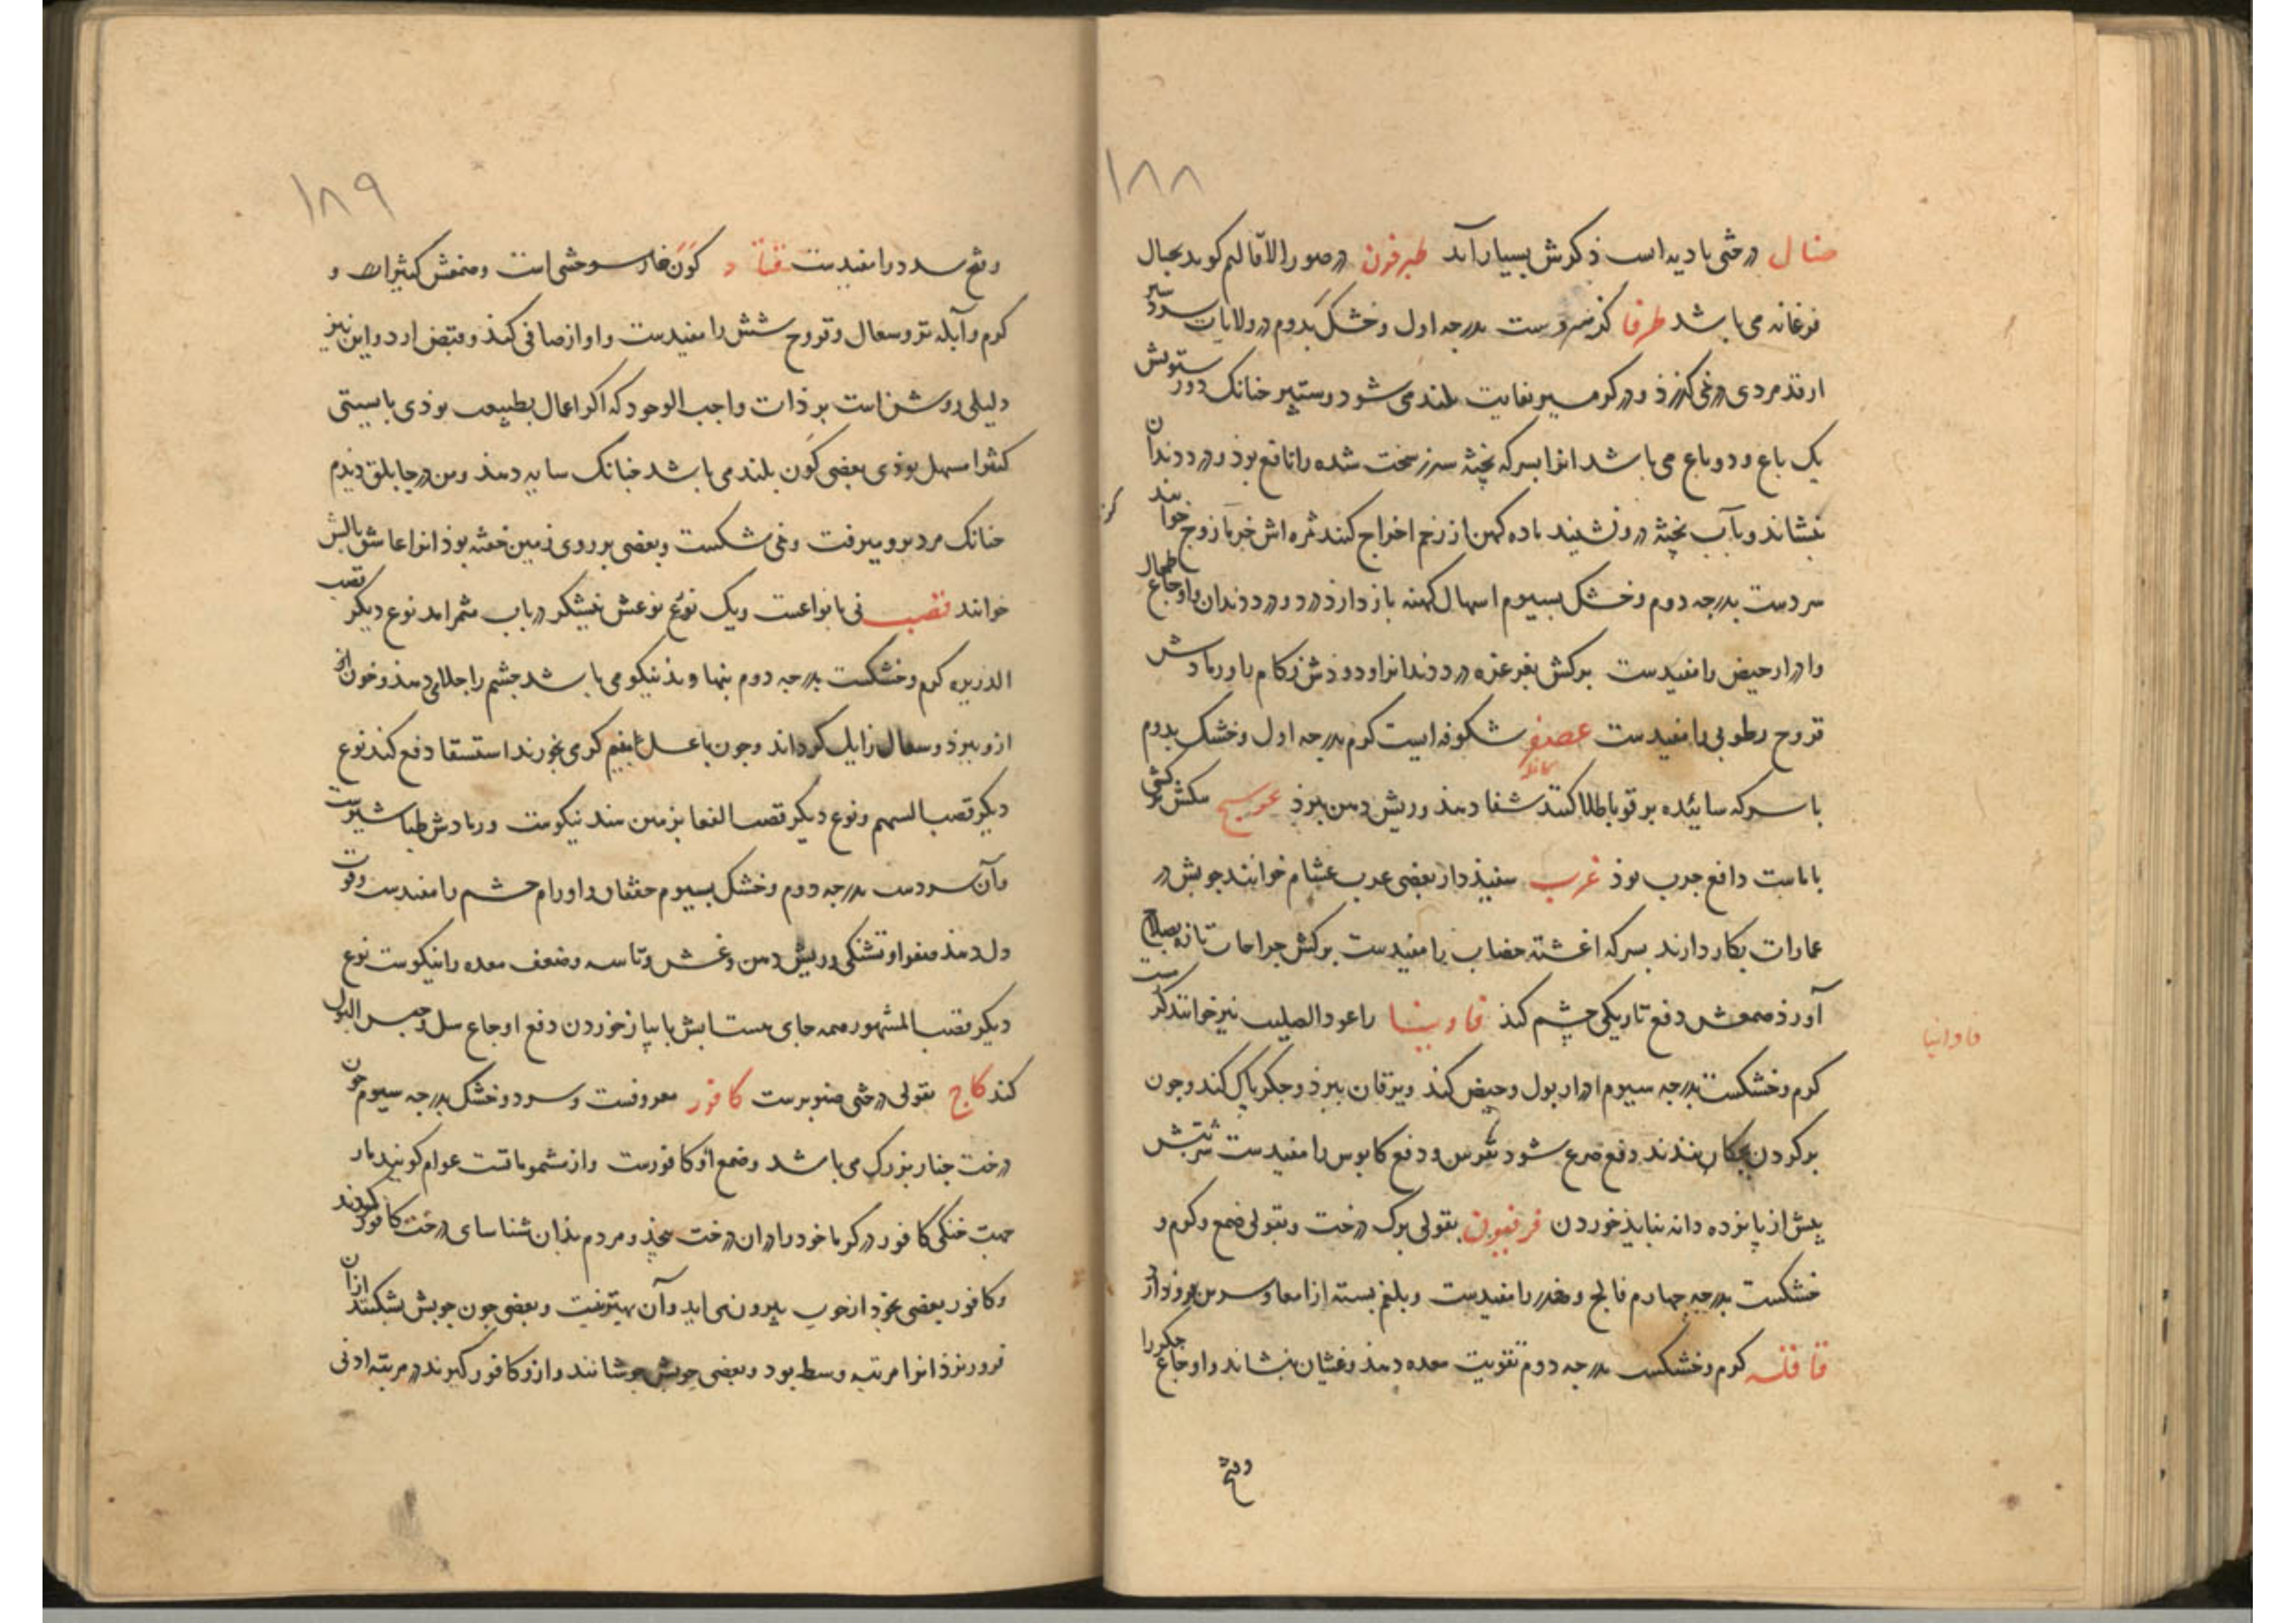 ۱۸۸
ضال درختی بادیه است ذکرش بسیار آمد طبرفون در صور الاقالیم کوید بجبال
فرغانه می باشد طرفا کز سردست بدرجه اول و خشک بدوم در ولایات سردسیر
از قد مردی درنمی کذرذ و در کرمسیر بغایت بلند می شود و ستبر جنانک دور ستونش
یک باع و دو باع می باشد انرا بسرکه بخته سپرز سخت شده را نافع بوذ و درد دندان
بنشاند و بآب بخته درو نشینند باده کهن از رحم اخراج کنند ثمره اش خوانند
سردست بدرجه دوم و خشک بسیوم اسهال کهنه باز دارذ و درد دندان و اوجاع طحال
و ادرار حیض را مفیدست برکش بغرغره درد دندانرا و دوذش زکام را و رمادش
قروح رطوبی را مفیدست عصفر شکوفه است کرم بدرجه اول و خشک بدوم
با سرکه سائیده بر قوبا طلا کنند شفا دهد و ریش دهن ببرذ عوسج
با ماست دافع جرب بوذ غرب سفیذدار بعضی عرب عشام خوانند جوبش در
عمارات بکار دارند بسرکه اغشته خضاب را مفیدست برکش جراحات تازه بصلاح
آورذ صمغش دفع تاریکی چشم کند فاوینا را عود الصلیب نیز خوانند
فاوانیا
کرم و خشکست بدرجه سیوم ادرار بول و حیض کند و یرقان ببرذ و جکر پاک کند و جون
بر کردن بندند دفع صرع شود و دفع کابوس را مفیدست
بیش از پانزده دانه نباید خوردن فرفیون بقولی برک درخت و بقولی صمغ و کرم و
خشکست بدرجه چهارم فالج و خدر را مفیدست و بلغم بسته از امعا
قاقله کرم و خشکست بدرجه دوم تقویت معده دهد و غشیان بنشاند و اوجاع جکر را
و فتح
۱۸۹
و فتح سدد را مفیدست قتاد کون خار وحشی است و صمغش کثیراست و
کرم و آبله تر و سعال و قروح شش را مفیدست و اواز صافی کند و قبض ارد و این نیز
دلیلی روشن است بر ذات واجب الوجود که اکر اعمال بطبیعت بوذی بایستی
کثیرا مسهل بوذی بعضی کون بلند می باشد جنانک سایه دهد و من در جابلق دیدم
جنانک مرد برو میرفت و نمی شکست و بعضی بر روی زمین خفته بوذ انرا عاشق بالش
خوانند قصب نی بانواعست و یک نوع نوعش نیشکر در باب مثمر امد نوع دیکر قصب
الذریره کرم و خشکست بدرجه دوم بنهاوند نیکو می باشد چشم را جلا می دهد و خون از
ازو ببرذ و سعال زایل کرداند و جون با عسل و تخم کرفس بخورند استسقا دفع کند نوع
دیکر قصب السهم و نوع دیکر قصب القفا بزمین هند نیکوست و رمادش طباشیرست
و آن سردست بدرجه دوم و خشک بسیوم خفقان و اورام چشم را مفیدست و قوت
دل دهد صفرا و تشنکی و ریش دهن و غش و تاسه و ضعف معده را نیکوست نوع
دیکر قصب المشهور همه جای هست ابش با پیاز خوردن دفع اوجاع سل و حبس البول
کند کاج بقولی درختی صنوبرست کافور معروفست و سرد و خشک بدرجه سیوم جون
درخت چنار بزرک می باشد و صمغ او کافورست و از مشموماتست عوام کویند مار
جهت خنکی کافور در کرما خود را در ان درخت پیچذ و مردم بذان شناسای درخت کافور کردند
و کافور بعضی بخود از خوب بیرون می اید و آن بهترینست و بعضی جون جوبش بشکنند از ان
فروریزذ انرا مرتبه وسط بود و بعضی جوبش جوشانند و ازو کافور کیرند در مرتبه ادنی